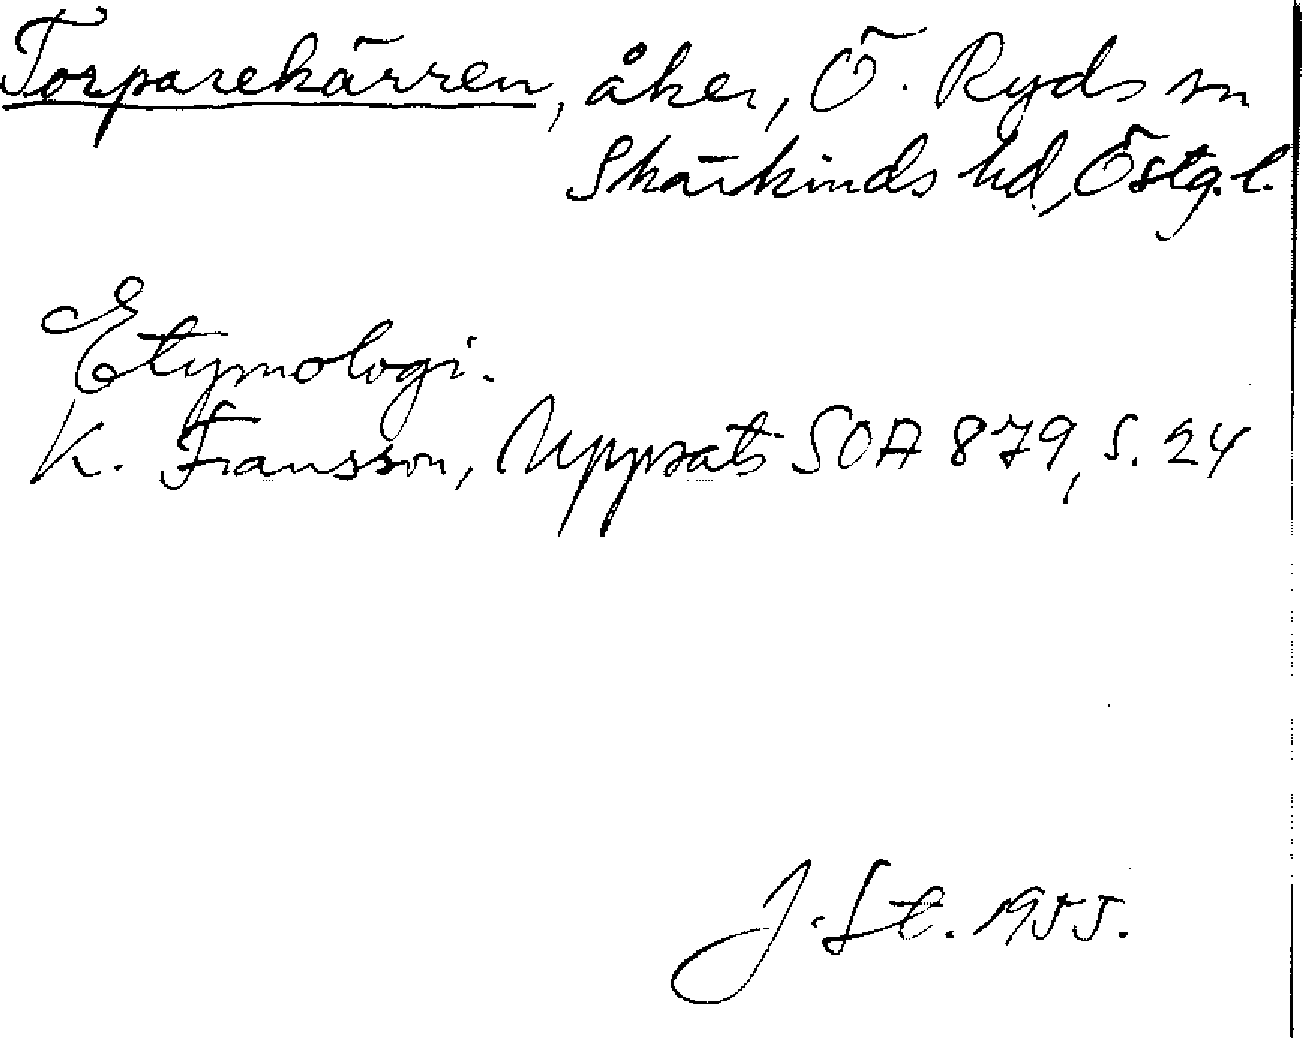 Torparekärren, åker, Ö. Ryds sn
Skärkinds hd., Östg.l.
Etymologi.
K. Fransson, Uppsats SOA 879, s. 24
J. St. 1955.